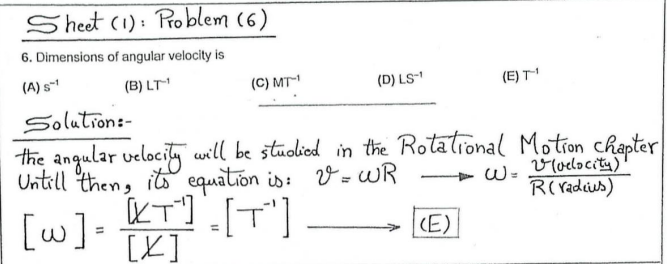 Sheet (1): Problem (6)
6. Dimensions of angular velocity is
(A) s⁻¹ (B) LT⁻¹ (C) MT⁻¹ (D) LS⁻¹ (E) T⁻¹
Solution:-
The angular velocity will be studied in the Rotational Motion chapter
Untill then, its equation is: v = ωR → ω = v(velocity) / R(radius)
[ω] = [LT⁻¹] / [L] = [T⁻¹] → (E)